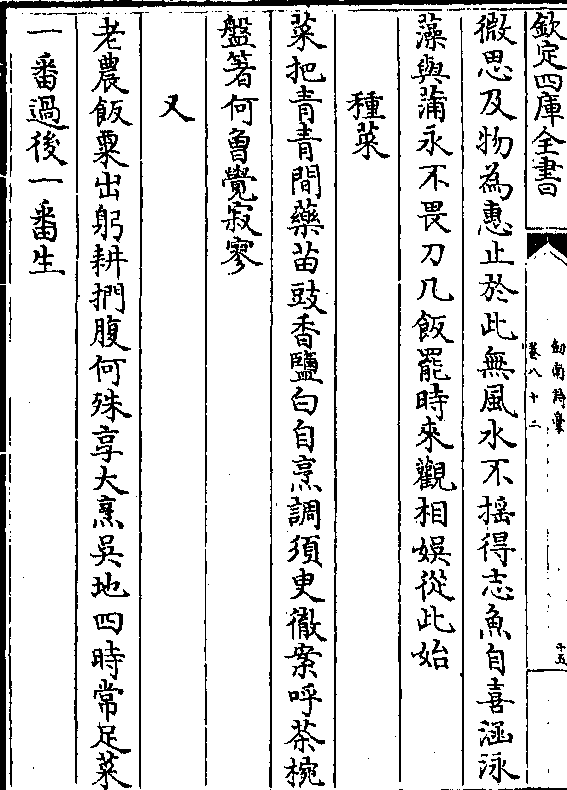 欽定四庫全書
劒南詩藁
卷八十二
十五
微思及物為惠止於此無風水不揺得志魚自喜涵泳
藻與蒲永不畏刀几飯罷時來觀相娯從此始
種菜
菜把青青間藥苗豉香鹽白自烹調須臾徹案呼茶椀
盤箸何曾覺寂寥
又
老農飯粟出躬耕捫腹何殊享大烹吳地四時常足菜
一番過後一番生